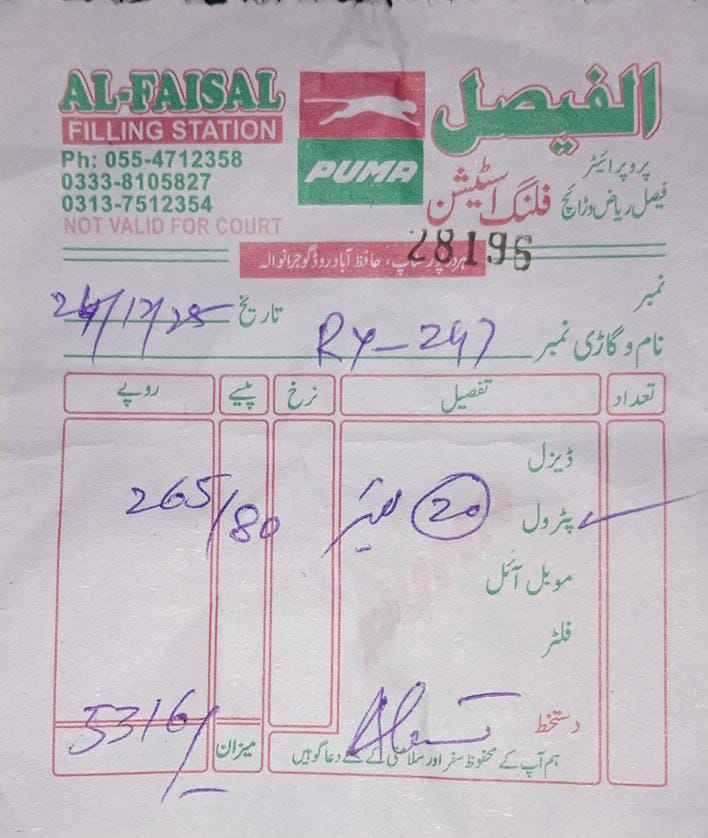 AL-FAISAL
FILLING STATION
Ph: 055-4712358
0333-8105827
0313-7512354
NOT VALID FOR COURT
PUMA
الفیصل
فلنگ اسٹیشن
پروپرائیٹر
فیصل ریاض وڑائچ
حافظ آباد روڈ گوجرانوالہ
28196
نمبر
تاریخ 24/12/25
نام و گاڑی نمبر RY-247
تعداد تفصیل نرخ پیسے روپے
ڈیزل
پٹرول 20 لیٹر 265/80
موبل آئل
فلٹر
دستخط
میزان 5316/-
ہم آپ کے محفوظ سفر اور سلامتی کے لئے دعا گو ہیں